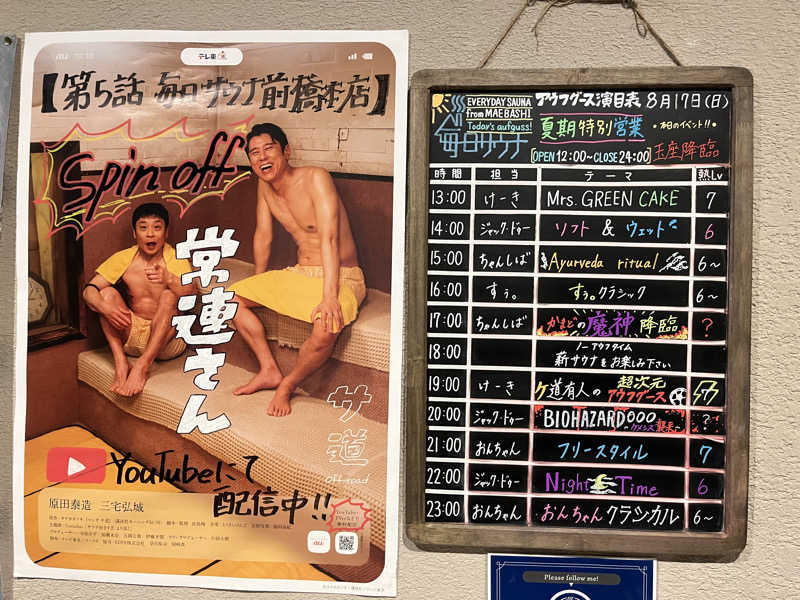 au
テレ東
【第5話 毎日サウナ前橋本店】
Spin off
常連さん
サ道
off-road
YouTubeにて
配信中!!
原田泰造 三宅弘城
EVERYDAY SAUNA
from MAEBASHI
Today's autguss!
毎日サウナ
アウフグース演目表 8月17日(日)
夏期特別営業
・本日のイベント!!・
[OPEN 12:00~CLOSE 24:00] 玉座降臨
時間 担当 テーマ 熱Lv
13:00 けーき Mrs. GREEN CAKE 7
14:00 ジャック・ドゥー ソフト & ウェット 6
15:00 ちゃんしば Ayurveda ritual 6~
16:00 すぅ。 すぅ。クラシック 6~
17:00 ちゃんしば かまどの魔神降臨 ?
18:00 ノーアウフタイム
薪サウナをお楽しみ下さい
19:00 けーき ケ道有人の 超次元
アウフグース
20:00 ジャック・ドゥー BIOHAZARD ?
~ケメシス襲来~
21:00 おんちゃん フリースタイル 7
22:00 ジャック・ドゥー Night Time 6
23:00 おんちゃん おんちゃんクラシカル 6~
Please follow me!